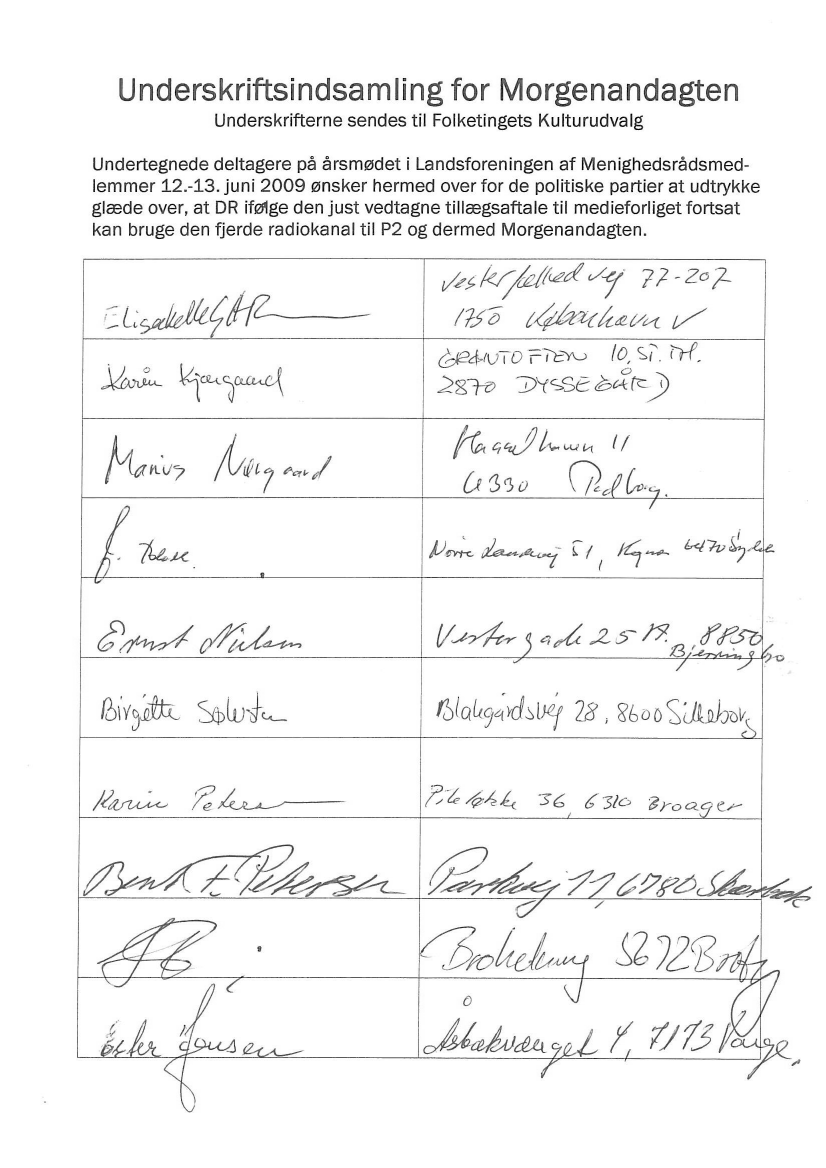 Underskriftsindsamling for Morgenandagten
Underskrifterne sendes til Folketingets Kulturudvalg
Undertegnede deltagere på årsmødet i Landsforeningen af Menighedsrådsmed-
lemmer 12.-13. juni 2009 ønsker hermed over for de politiske partier at udtrykke
glæde over, at DR ifølge den just vedtagne tillægsaftale til medieforliget fortsat
kan bruge den fjerde radiokanal til P2 og dermed Morgenandagten.
Vesterfælled vej 77-207
1750 København V
Karen Kjærgaard
GRANTOFTEN 10, ST. TH.
2870 DYSSEGÅRD
Marius Nørgaard
11
6330 Padborg.
51, 6470 Sydals
Ernst Nielsen
Vestergade 25 A. 8850
Bjerringbro
Birgitte
28, 8600 Silkeborg
Karin Petersen
Pileløkke 36, 6310 Broager
Bent F. Petersen
Parkvej 11, 6780 Skærbæk
5672 Broby
Ester Jensen
Åsbakvænget 4, 7173 Vonge.